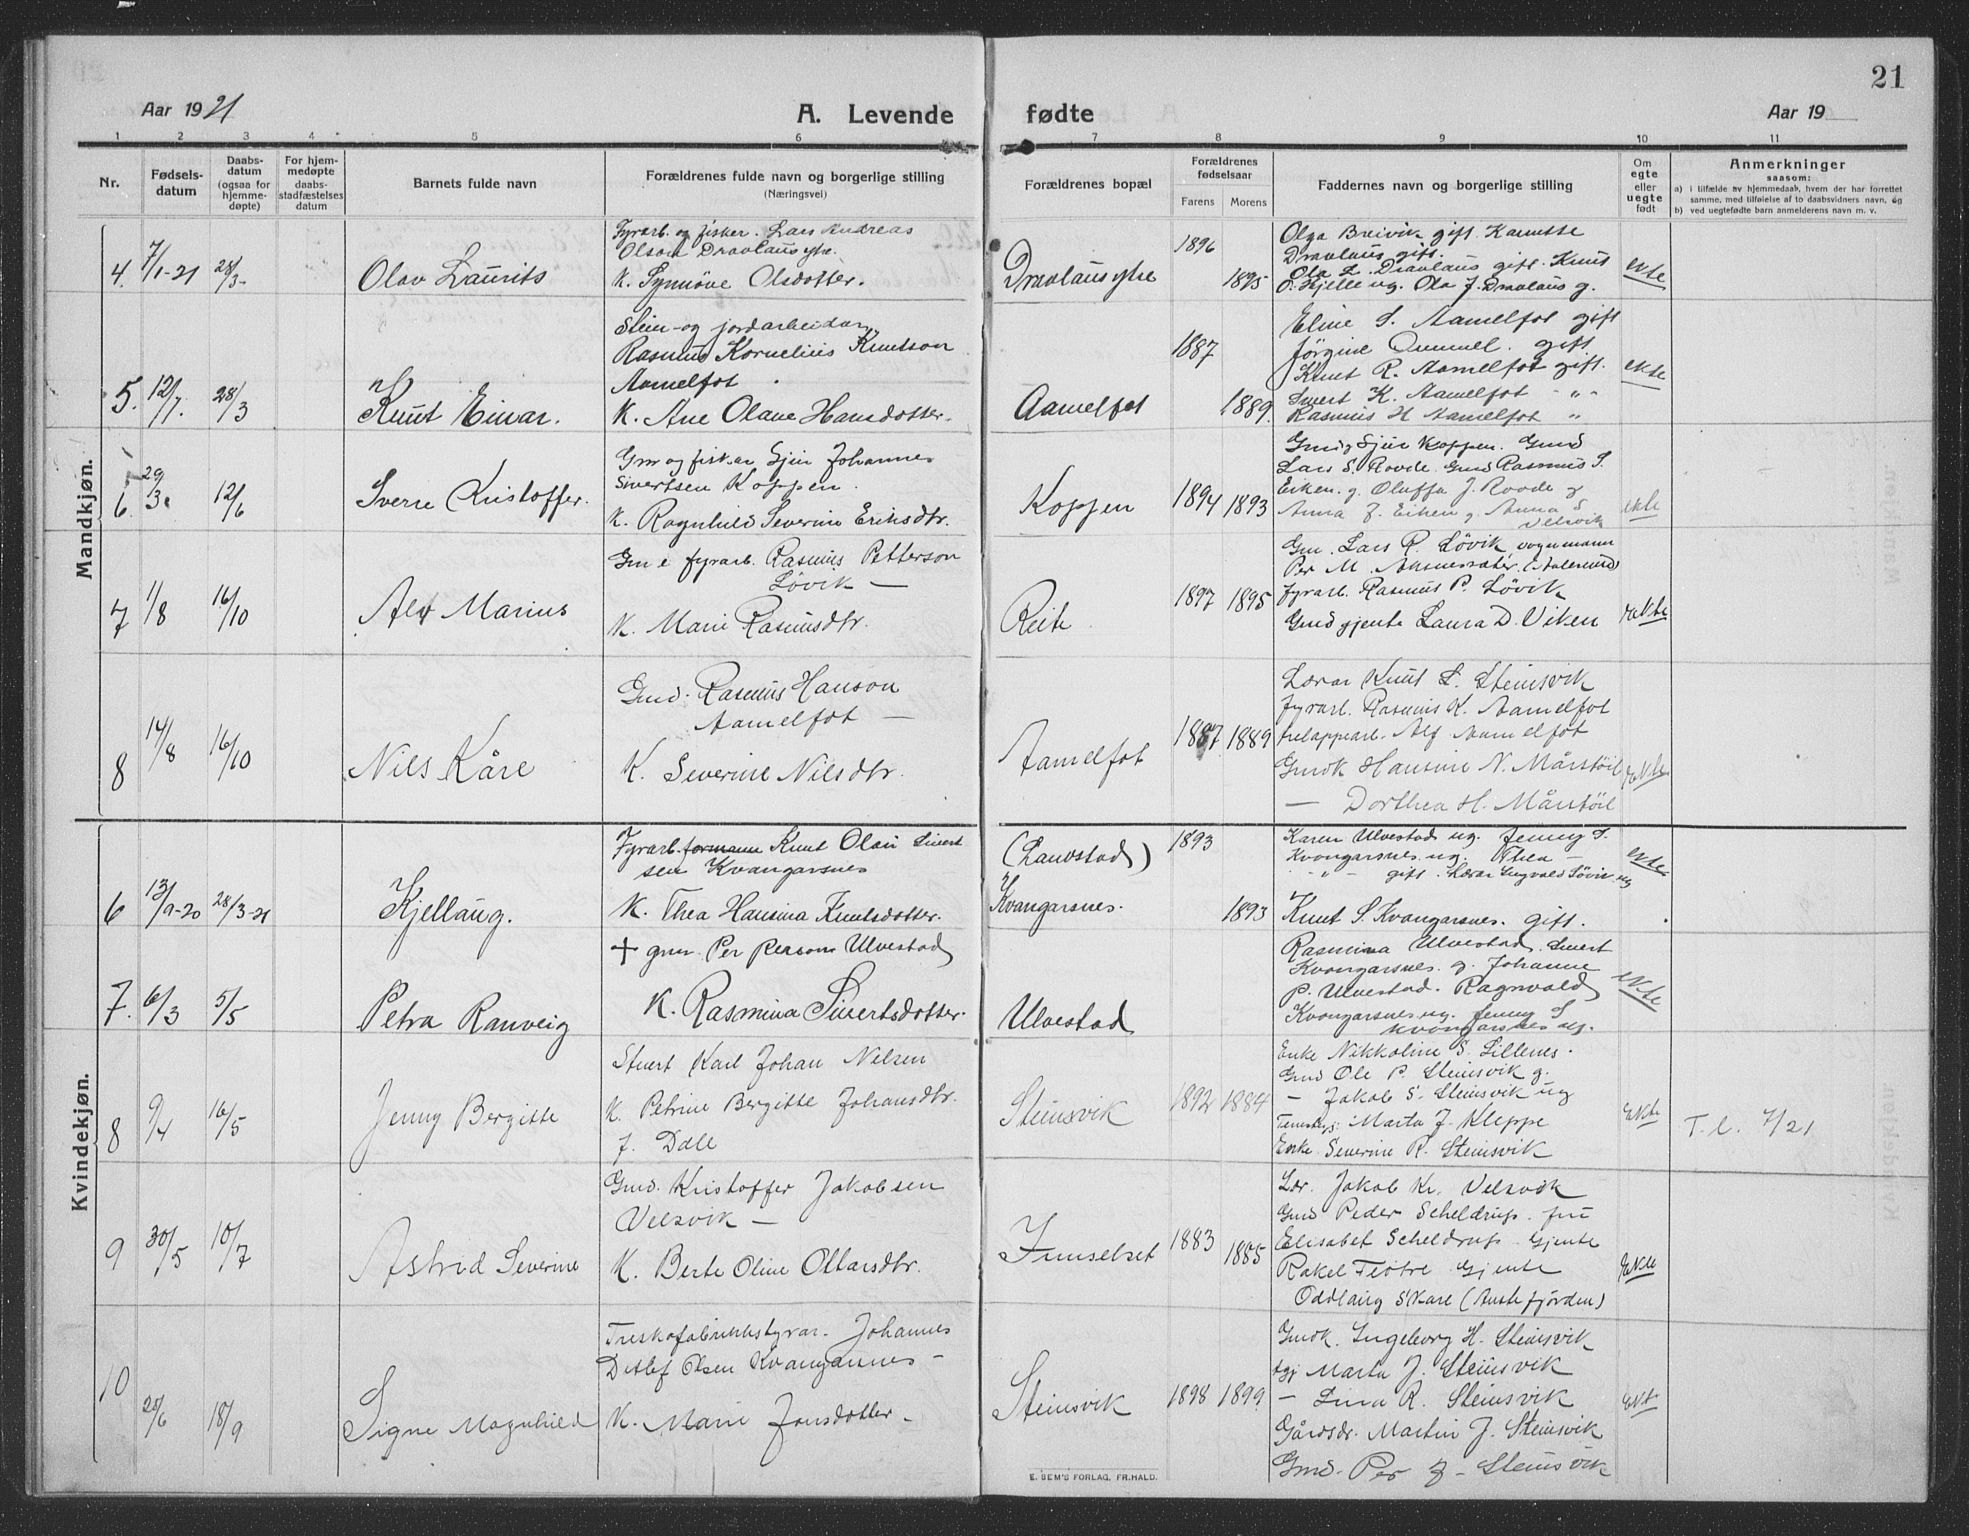 21
Aar 1921
A. Levende fødte
Aar 19
1 2 3 4 5 6 7 8 9 10 11
Nr.
Fødsels-
datum
Daabs-
datum
(ogsaa for
hjemme-
døpte)
For hjem-
medøpte
daabs-
stadfæstelses
datum
Barnets fulde navn
Forældrenes fulde navn og borgerlige stilling
(Næringsvei)
Forældrenes bopæl
Forældrenes
fødselsaar
Farens Morens
Faddernes navn og borgerlige stilling
Om
egte
eller
uegte
født
Anmerkninger
saasom:
a) i tilfælde av hjemmedaab, hvem der har forrettet
samme, med tilføielse af to daabsvidners navn, og
b) ved uegtefødte barn anmelderens navn m. v.
Mandkjøn.
4. 7/1-21 28/3- Olav Laurits
Fyrarb. og fisker. Lars Andreas
Olson Dravlaus ytre.
K. Synnöve Olsdotter.
Dravlaus ytre
1896 1895
Olga Breivik gift. Kanutte
Dravlaus gift.
Ola L. Dravlaus gift. Knut
O. Kjelle ug. Ola J. Dravlaus g.
ekte
5. 12/1. 28/3 Knut Einar.
Stein- og jordarbeidar
Rasmus Kornelius Knutson
Aamelfot.
K. Ane Olave Hansdotter.
Aamelfot
1887 1889.
Eline S. Aamelfot gift
Jørgine gift
Knut R. Aamelfot gift.
Sivert K. Aamelfot - " -
Rasmus H Aamelfot "
ekte
6. 29/3. 12/6 Sverre Kristoffer.
Gm og fiskar Sjur Johannes
Sivertsen Koppen.
K. Ragnhild Severine Eriksdtr.
Koppen
1894 1893
Gmd g Sjur Koppen. Gmd
Lars S. Rovde. Gmd Rasmus S.
Eiken. g. Oluffa J. Rovde g
Anna J. Eiken g Anna S
Velsvik
ekte
7 1/8 16/10 Alv Marius
Gm e fyrarb. Rasmus Petterson
Løvik —
K. Marie Rasmusdtr.
Reite
1897 1895
Gm. Lars R. Løvik, vognmann
Per M. (Aalesund)
fyrarb. Rasmus P. Løvik
Gmd gjente Laura D. Viken
ekte
8 14/8 16/10 Nils Kåre
Gmd. Rasmus Hanson
Aamelfot —
K. Severine Nilsdtr.
Aamelfot
1887 1889
Lærar Knut L. Steinsvik
fyrarb. Rasmus K. Aamelfot
Alf Aamelfot
Gmdk Hansine N. Mårstöil
— Dorthea H. Mårstöil
ekte
Kvindekjøn.
6 13/9-20 28/3-21 Kjellaug.
Fyrarb. formann Knut Olai Sivert
sen Kvangarsnes
K. Thea Hansina Knutsdotter.
(Laustad)
Kvangarsnes.
1893 1893
Karen Ulvestad ug. Jenny S.
Kvangarsnes ug. Thea —
- " - gift. Lærar Ingvald Løvik ug
Knut S. Kvangarsnes. gift.
ekte
7. 6/3 5/5 Petra Ranveig
+ gm. Per Person Ulvestad
K. Rasmina Sivertsdotter.
Ulvestad
Rasmina Ulvestad. Sivert
Kvangarsnes. g. Johanne
P. Ulvestad. Ragnvald
Kvangarsnes ug. Jenny S
Kvangarsnes ug.
ekte
8 9/4 16/5 Jenny Bergitte
Stuert Karl Johan Nilsen
K. Petrine Bergitte Johansdtr.
f. Dale
Steinsvik
1892 1884
Enke Nikkoline S. Lillenes.
Gmd Ole P. Steinsvik g.
— Jakob S. Steinsvik ug
Marta J. Kleppe
Enke Severine R. Steinsvik
Ekte
T. l. 7/21
9 30/5 10/7 Astrid Severine
Gmd. Kristoffer Jakobsen
Velsvik —
K. Berte Oline Ottarsdtr.
1883 1885
Lær. Jakob Kr. Velsvik
Gmd Peder Scheldrup. fru
Elisabet Scheldrup. Gjente
Rakel Gjente
Oddlaug (Austefjorden)
Ekte
10 20/6 18/9 Signe Magnhild
Treskofabrikkstyrar. Johannes
Detlef Olsen Kvangarsnes —
K. Marie Jonsdotter —
Steinsvik
1898 1899
Gmdk. Ingeborg H. Steinsvik
Marta J. Steinsvik
— Lina R. Steinsvik
Gårdsdr. Martin J. Steinsvik
Gmd. Per J. Steinsvik
Ekt
E. SEM'S FORLAG, FR.HALD.